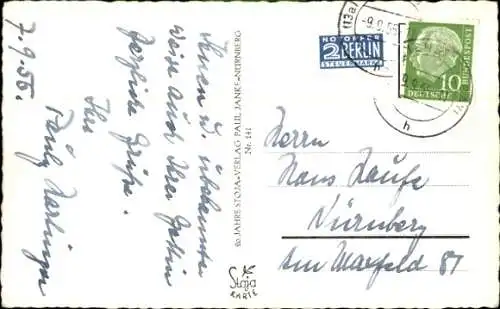 7.9.55.
Ihnen u. unbekannter
weise auch Ihrer Gattin
herzliche Grüße.
Ihr
60 JAHRE STOJA-VERLAG PAUL JANKE-NÜRNBERG
Nr. 141
Stoja
KARTE
(13a)
-9.9.55
h
NOTOPFER
2 BERLIN
STEUERMARKE
10
DEUTSCHE
BUNDESPOST
h
Herrn
Hans
Nürnberg
Am Maxfeld 81